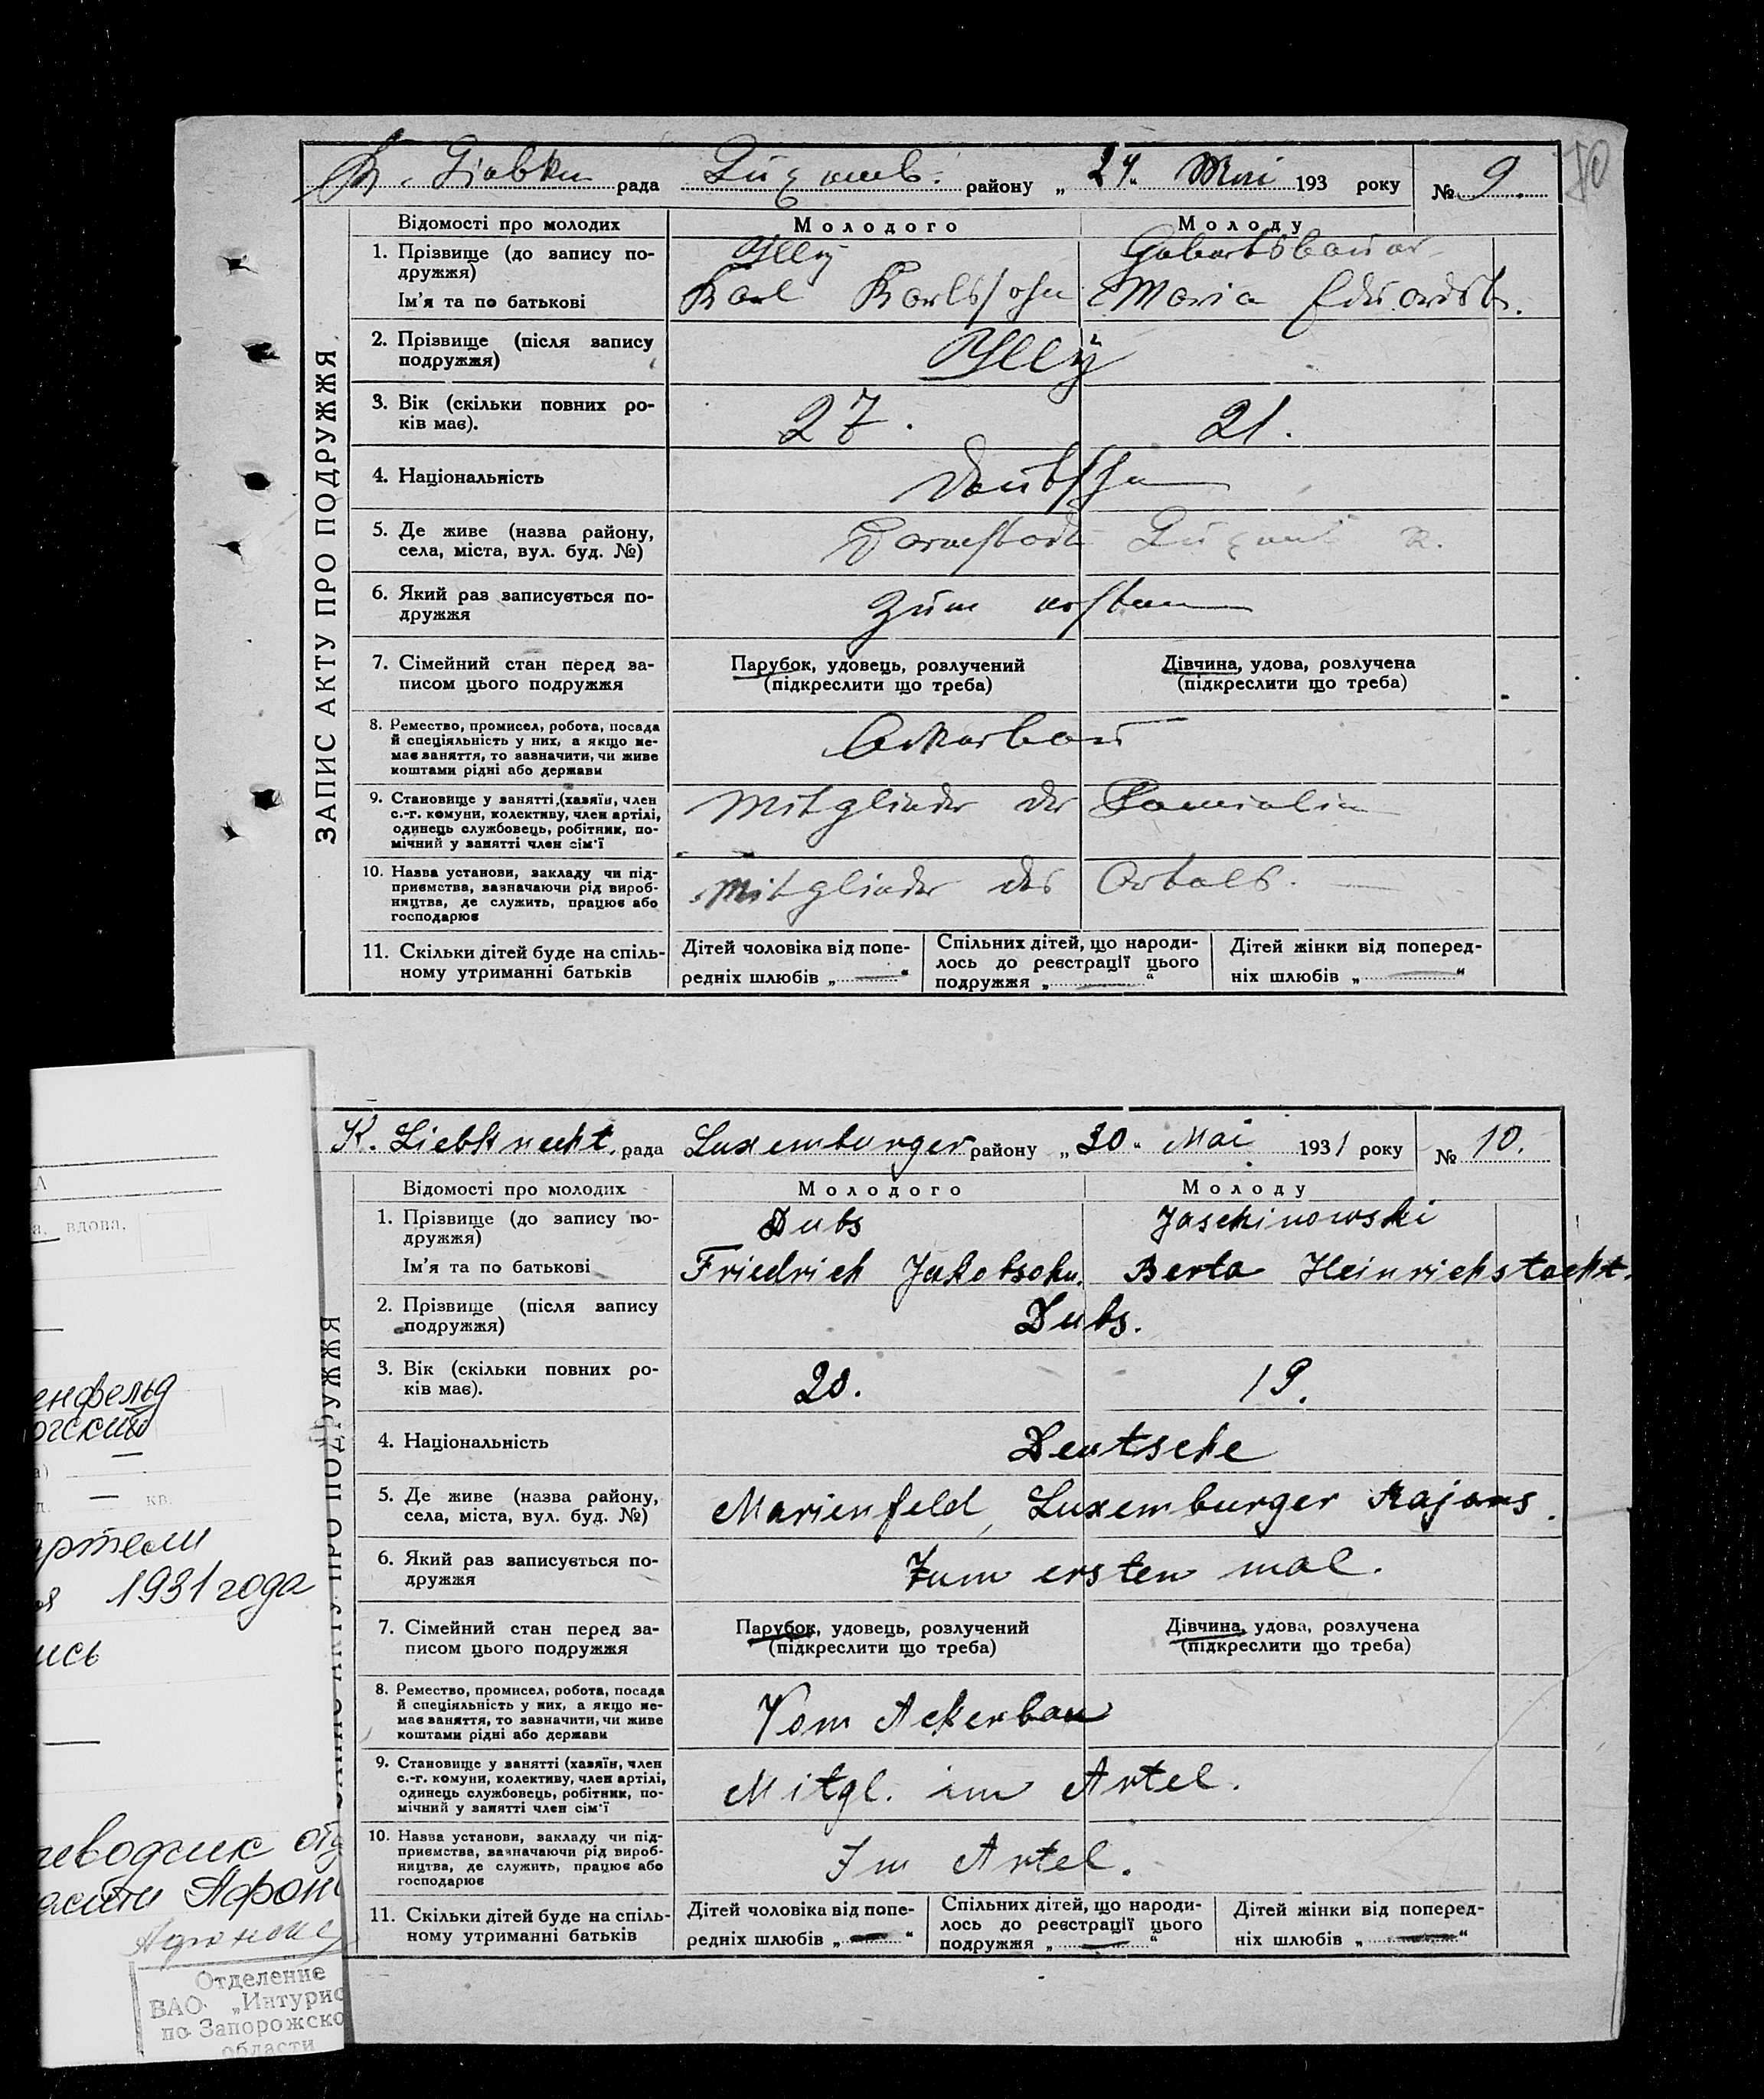 K. Liebkn рада Luxemb. району „ 24 “ Mai 193 року № 9.
70
Відомості про молодих Молодого Молоду
1. Прізвище (до запису по-
дружжя) Illÿ Gebertsbauer
Ім'я та по батькові Karl Karlssohn Maria Eduardst.
2. Прізвище (після запису
подружжя) Illÿ
3. Вік (скільки повних ро-
ків має). 27. 21.
4. Національність Deutsche
5. Де живе (назва району,
села, міста, вул. буд. №) Darmstadt Luxemb R.
6. Який раз записується по-
дружжя Zum ersten
7. Сімейний стан перед за-
писом цього подружжя
Парубок, удовець, розлучений
(підкреслити що треба)
Дівчина, удова, розлучена
(підкреслити що треба)
8. Ремество, промисел, робота, посада
й спеціяльність у них, а якщо не-
має заняття, то зазначити, чи живе
коштами рідні або держави
Ackerbau
9. Становище у занятті (хазяїн, член
с.-г. комуни, колективу, член артілі,
одинець службовець, робітник, по-
мічний у занятті член сім'ї
Mitglieder der Familie
10. Назва установи, закладу чи під-
приємства, зазначаючи рід вироб-
ництва, де служить, працює або
господарює
Mitglieder des Artels.
11. Скільки дітей буде на спіль-
ному утриманні батьків
Дітей чоловіка від попе-
редніх шлюбів „ — “
Спільних дітей, що народи-
лось до реєстрації цього
подружжя „ — “
Дітей жінки від поперед-
ніх шлюбів „ — “
ЗАПИС АКТУ ПРО ПОДРУЖЖЯ
K. Liebknecht. рада Luxemburger району „ 30 “ Mai 1931 року № 10.
Відомості про молодих Молодого Молоду
1. Прізвище (до запису по-
дружжя) Dubs Jaschinowski
Ім'я та по батькові Friedrich Jakobsohn. Berta Heinrichstocht.
2. Прізвище (після запису
подружжя) Dubs.
3. Вік (скільки повних ро-
ків має). 20. 19.
4. Національність Deutsche
5. Де живе (назва району,
села, міста, вул. буд. №) Marienfeld, Luxemburger Rajons.
6. Який раз записується по-
дружжя Zum ersten mal.
7. Сімейний стан перед за-
писом цього подружжя
Парубок, удовець, розлучений
(підкреслити що треба)
Дівчина, удова, розлучена
(підкреслити що треба)
8. Ремество, промисел, робота, посада
й спеціяльність у них, а якщо не-
має заняття, то зазначити, чи живе
коштами рідні або держави
Vom Ackerbau
9. Становище у занятті (хазяїн, член
с.-г. комуни, колективу, член артілі,
одинець службовець, робітник, по-
мічний у занятті член сім'ї
Mitgl. im Artel.
10. Назва установи, закладу чи під-
приємства, зазначаючи рід вироб-
ництва, де служить, працює або
господарює
Im Artel.
11. Скільки дітей буде на спіль-
ному утриманні батьків
Дітей чоловіка від попе-
редніх шлюбів „ — “
Спільних дітей, що народи-
лось до реєстрації цього
подружжя „ — “
Дітей жінки від поперед-
ніх шлюбів „ — “
ПРО ПОДРУЖЖЯ
А
а. вдова.
енфельд
огский
а) —
д. — кв.
артели
ая 1931 года
ись
еводчик отд
ласти Афон
Отделение
ВАО „Интурис
по Запорожско
области